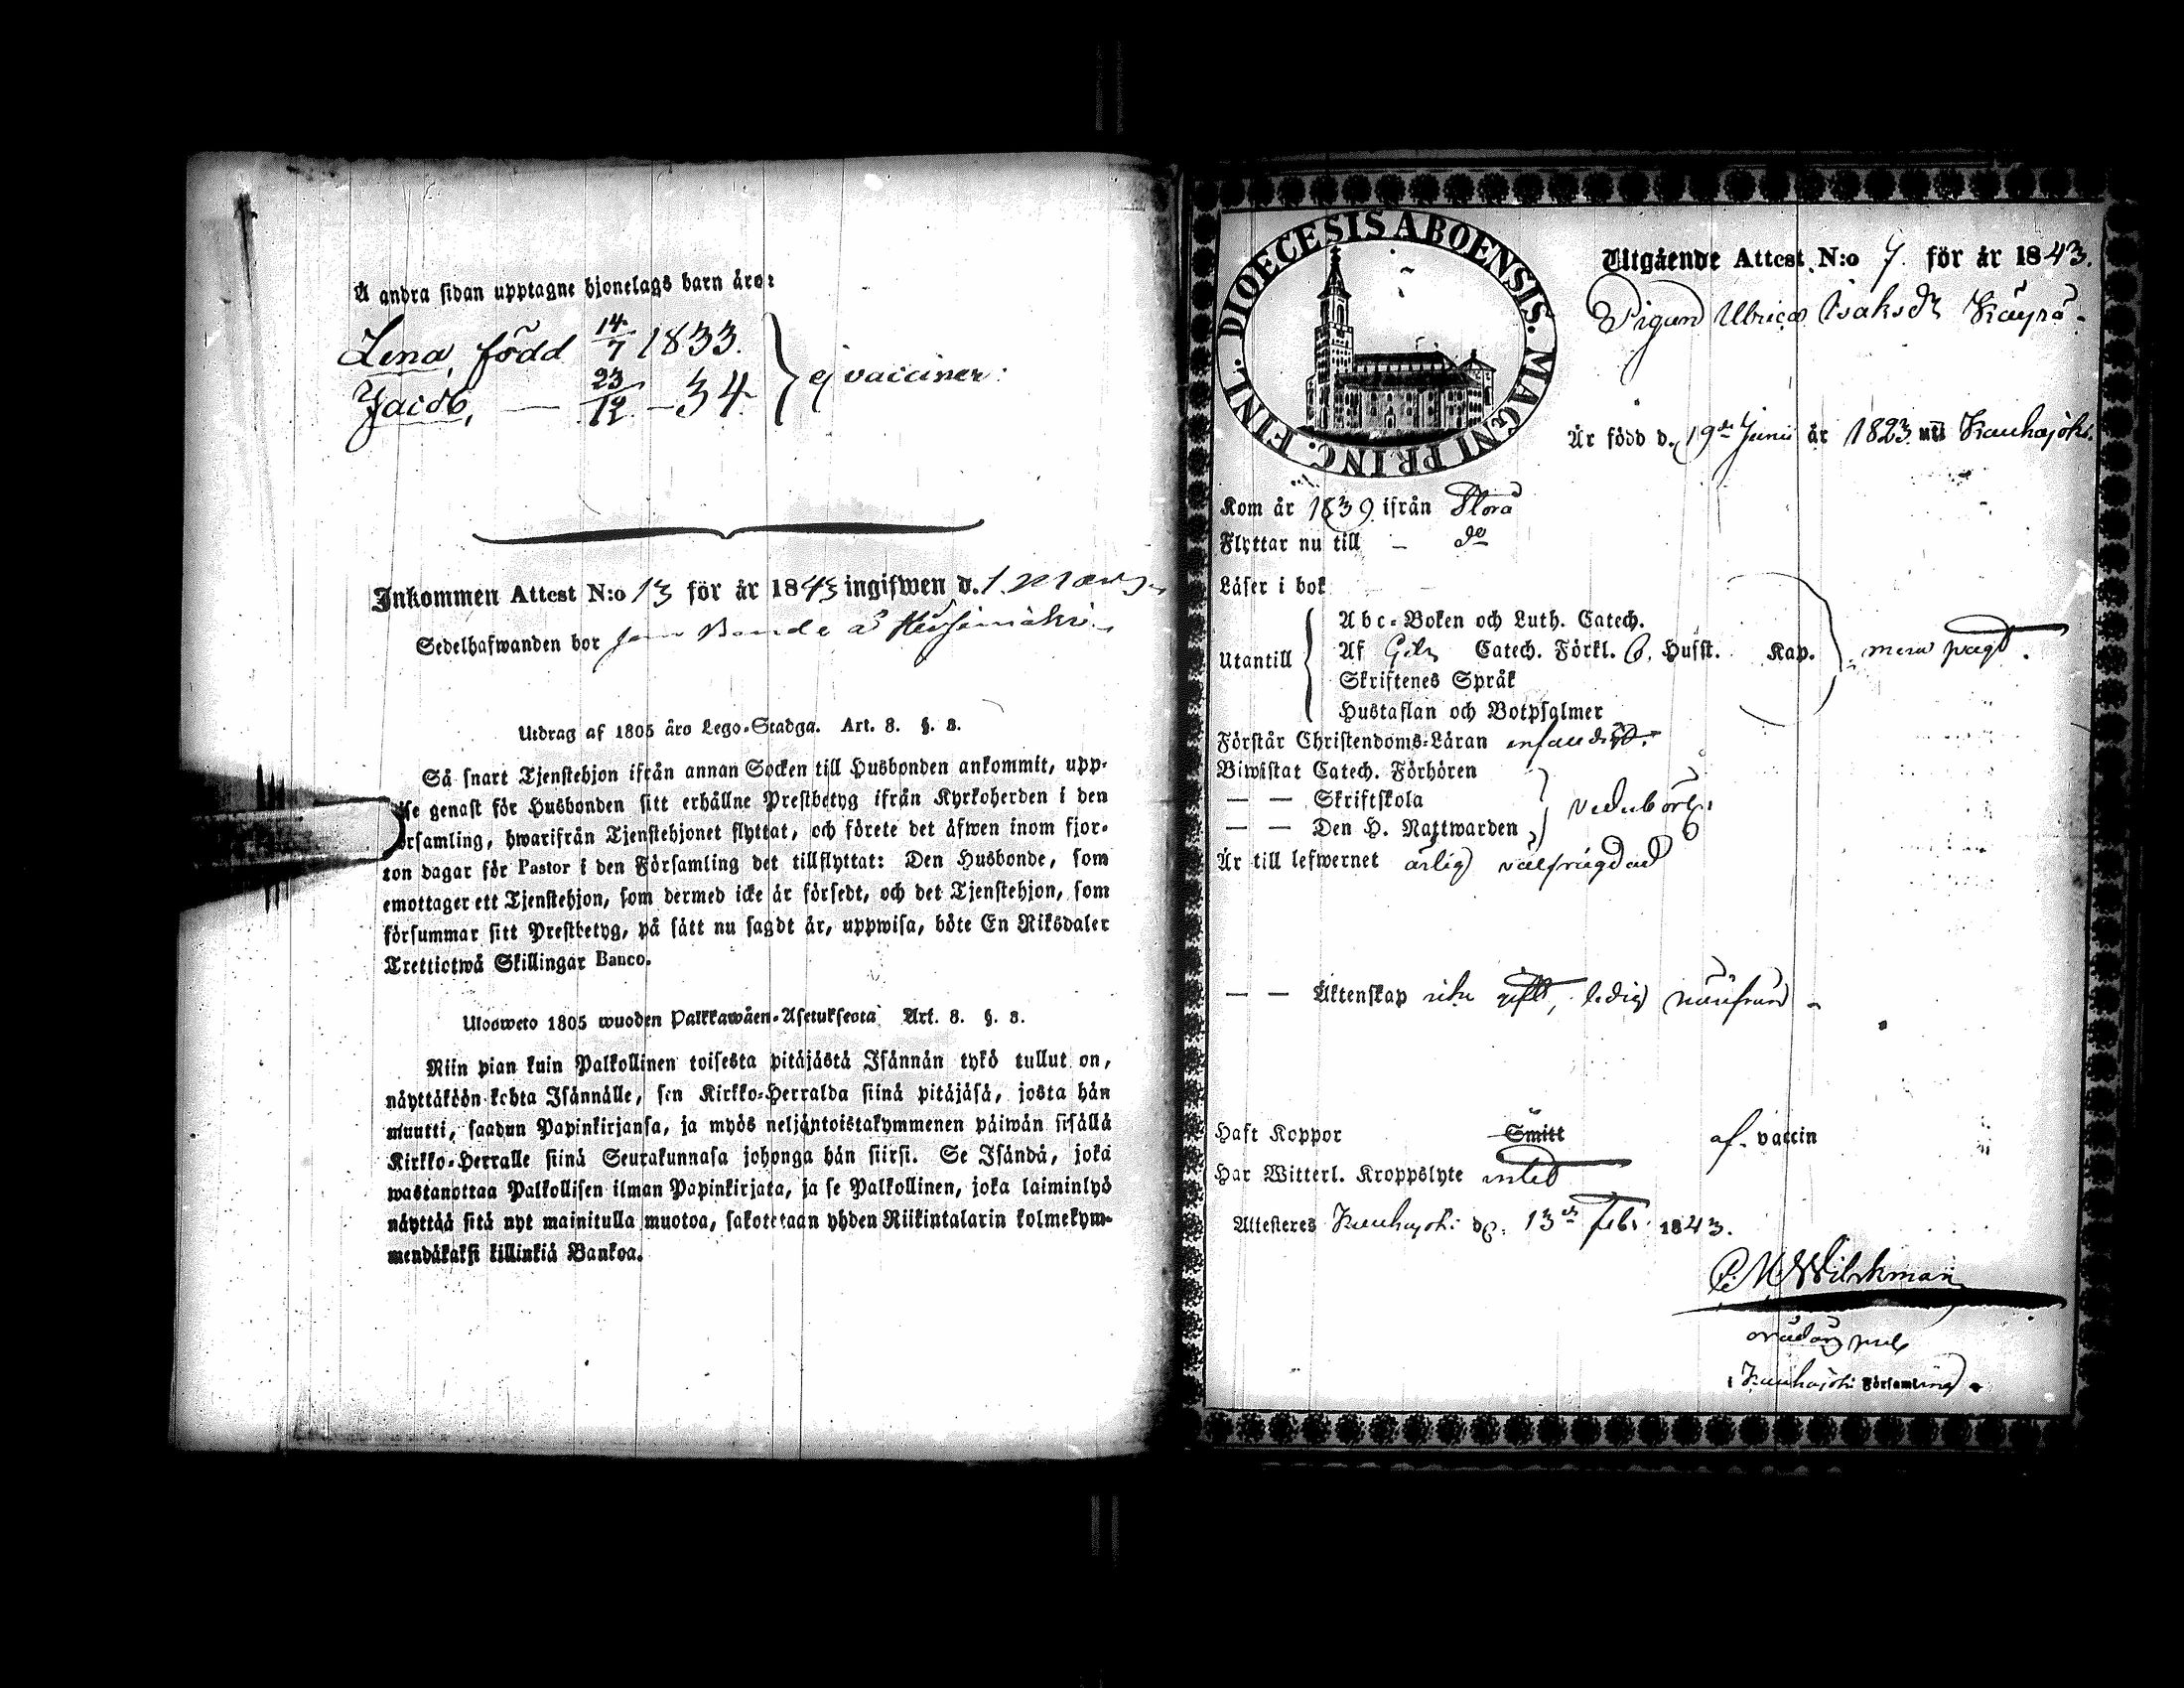 Å andra sidan upptagne hjonelags barn äro:
Lena, född 14/7 1833.
Jacob, — 23/12 — 34.
ej vacciner:
Inkommen Attest N:o 13 för år 1843 ingifwen d. 1. Mars
Sedelhafwanden bor som Bonde å
Utdrag af 1805 års Lego-Stadga. Art. 8. §. 8.
Så snart Tjenstehjon ifrån annan Socken till Husbonden ankommit, upp-
wise genast för Husbonden sitt erhållne Prestbetyg ifrån Kyrkoherden i den
Församling, hwarifrån Tjenstehjonet flyttat, och förete det äfwen inom fjor-
ton dagar för Pastor i den Församling det tillflyttat: Den Husbonde, som
emottager ett Tjenstehjon, som dermed icke är försedt, och det Tjenstehjon, som
försummar sitt Prestbetyg, på sätt nu sagdt är, uppwisa, böte En Riksdaler
Trettiotwå Skillingar Banco.
Ulosweto 1805 wuoden Palkkawäen-Asetuksesta Art. 8. §. 8.
Niin pian kuin Palkollinen toisesta pitäjästä Isännän tykö tullut on,
näyttäköön kohta Isännälle, sen Kirkko-Herralda siinä pitäjäsä, josta hän
muutti, saadun Papinkirjansa, ja myös neljäntoistakymmenen päiwän sisällä
Kirkko-Herralle siinä Seurakunnasa johonga hän siirsi. Se Isändä, joka
wastanottaa Palkollisen ilman Papinkirjata, ja se Palkollinen, joka laiminlyö
näyttää sitä nyt mainitulla muotoa, sakotetaan yhden Riikintalarin kolmekym-
mendäkaksi killinkiä Bankoa.
FINL. DIOECESIS ABOENSIS. MAGNI PRINC.
Utgående Attest N:o 7. för år 1843.
Pigan Ulrica Isaksdr Käyrä.
Är född d. 19de Junii år 1823 uti Kauhajoki.
Kom år 1839 ifrån Storå
Flyttar nu till — do
Läser i bok
Utantill
Abc-Boken och Luth. Catech.
Af Catech. Förkl. 6. Hufst. Kap.
Skriftenes Språk
Hustaflan och Botpsalmer
Förstår Christendoms-Läran
Biwistat Catech. Förhören
— — Skriftskola
— — Den H. Nattwarden
vederbörl.
Är till lefwernet ärlig välfrägdad
— — Äktenskap icke gift, ledig
Haft Koppor Smitt af. vaccin
Har Witterl. Kroppslyte intet
Attesteres Kauhajoki d. 13de Febr. 1843.
Kauhajoki Församling.